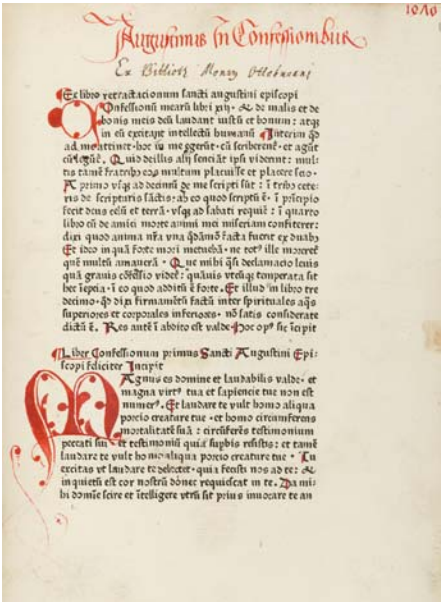 1010
Augustinus In Confessionibus
Ex Biblioth Monrij Ottoburani
Ex libro retractacionum sancti augustini episcopi
Confessionū mearū libri xiij · & de malis et de
bonis meis deū laudant iustū et bonum : atqȝ
in eū excitant intellectū humanū Interim qd̄
ad me attinet · hoc in me egerūt · cū scriberent̄ · et agūt
cū legūt̄ · Quid de illis alij senciāt ipsi viderint : mul-
tis tamē fratribȝ eos multum placuisse et placere scio ·
A primo vsqȝ ad decimū de me scripti sūt : ī tribȝ cete-
ris de scripturis sāctis : ab eo quod scriptū ē · ī prīcipio
fecit deus celū et terrā · vsqȝ ad sabati requiē : ī quarto
libro cū de amici morte animi mei miseriam confiterer :
dixi quod anima nr̄a vna qdāmō facta fuerit ex duabȝ
Et ideo in quā forte mori metuebā · ne totȝ ille moreret̄
quē multū amauerā · Que mihi qsi declamacio leuis
quā grauis cōfessio videt̄ : quāuis vtcūqȝ temperata sit
hec īepcia · ī eo quod additū ē forte · Et illud in libro tre
decimo · qd̄ dixi firmamētū factū inter spirituales aqs
superiores et corporales inferiores · nō satis considerate
dictū ē · Res autē ī abdito est valde · hoc opȝ sic īcipit
Liber Confessionum primus Sancti Augustini Epi-
scopi feliciter Incipit
Magnus es domine et laudabilis valde · et
magna virtȝ tua et sapiencie tue non est
numerȝ · Et laudare te vult homo aliqua
porcio creature tue · et homo circumferens
mortalitatē suā : circūferēs testimonium
peccati sui · et testimoniū quia supbis resistis : et tamē
laudare te vult homo aliqua porcio creature tue · Tu
excitas vt laudare te delectet · quia fecisti nos ad te : &
inquietū est cor nostrū donec requiescat in te · Da mi-
hi domīe scire et ītelligere vtrū sit prius inuocare te an